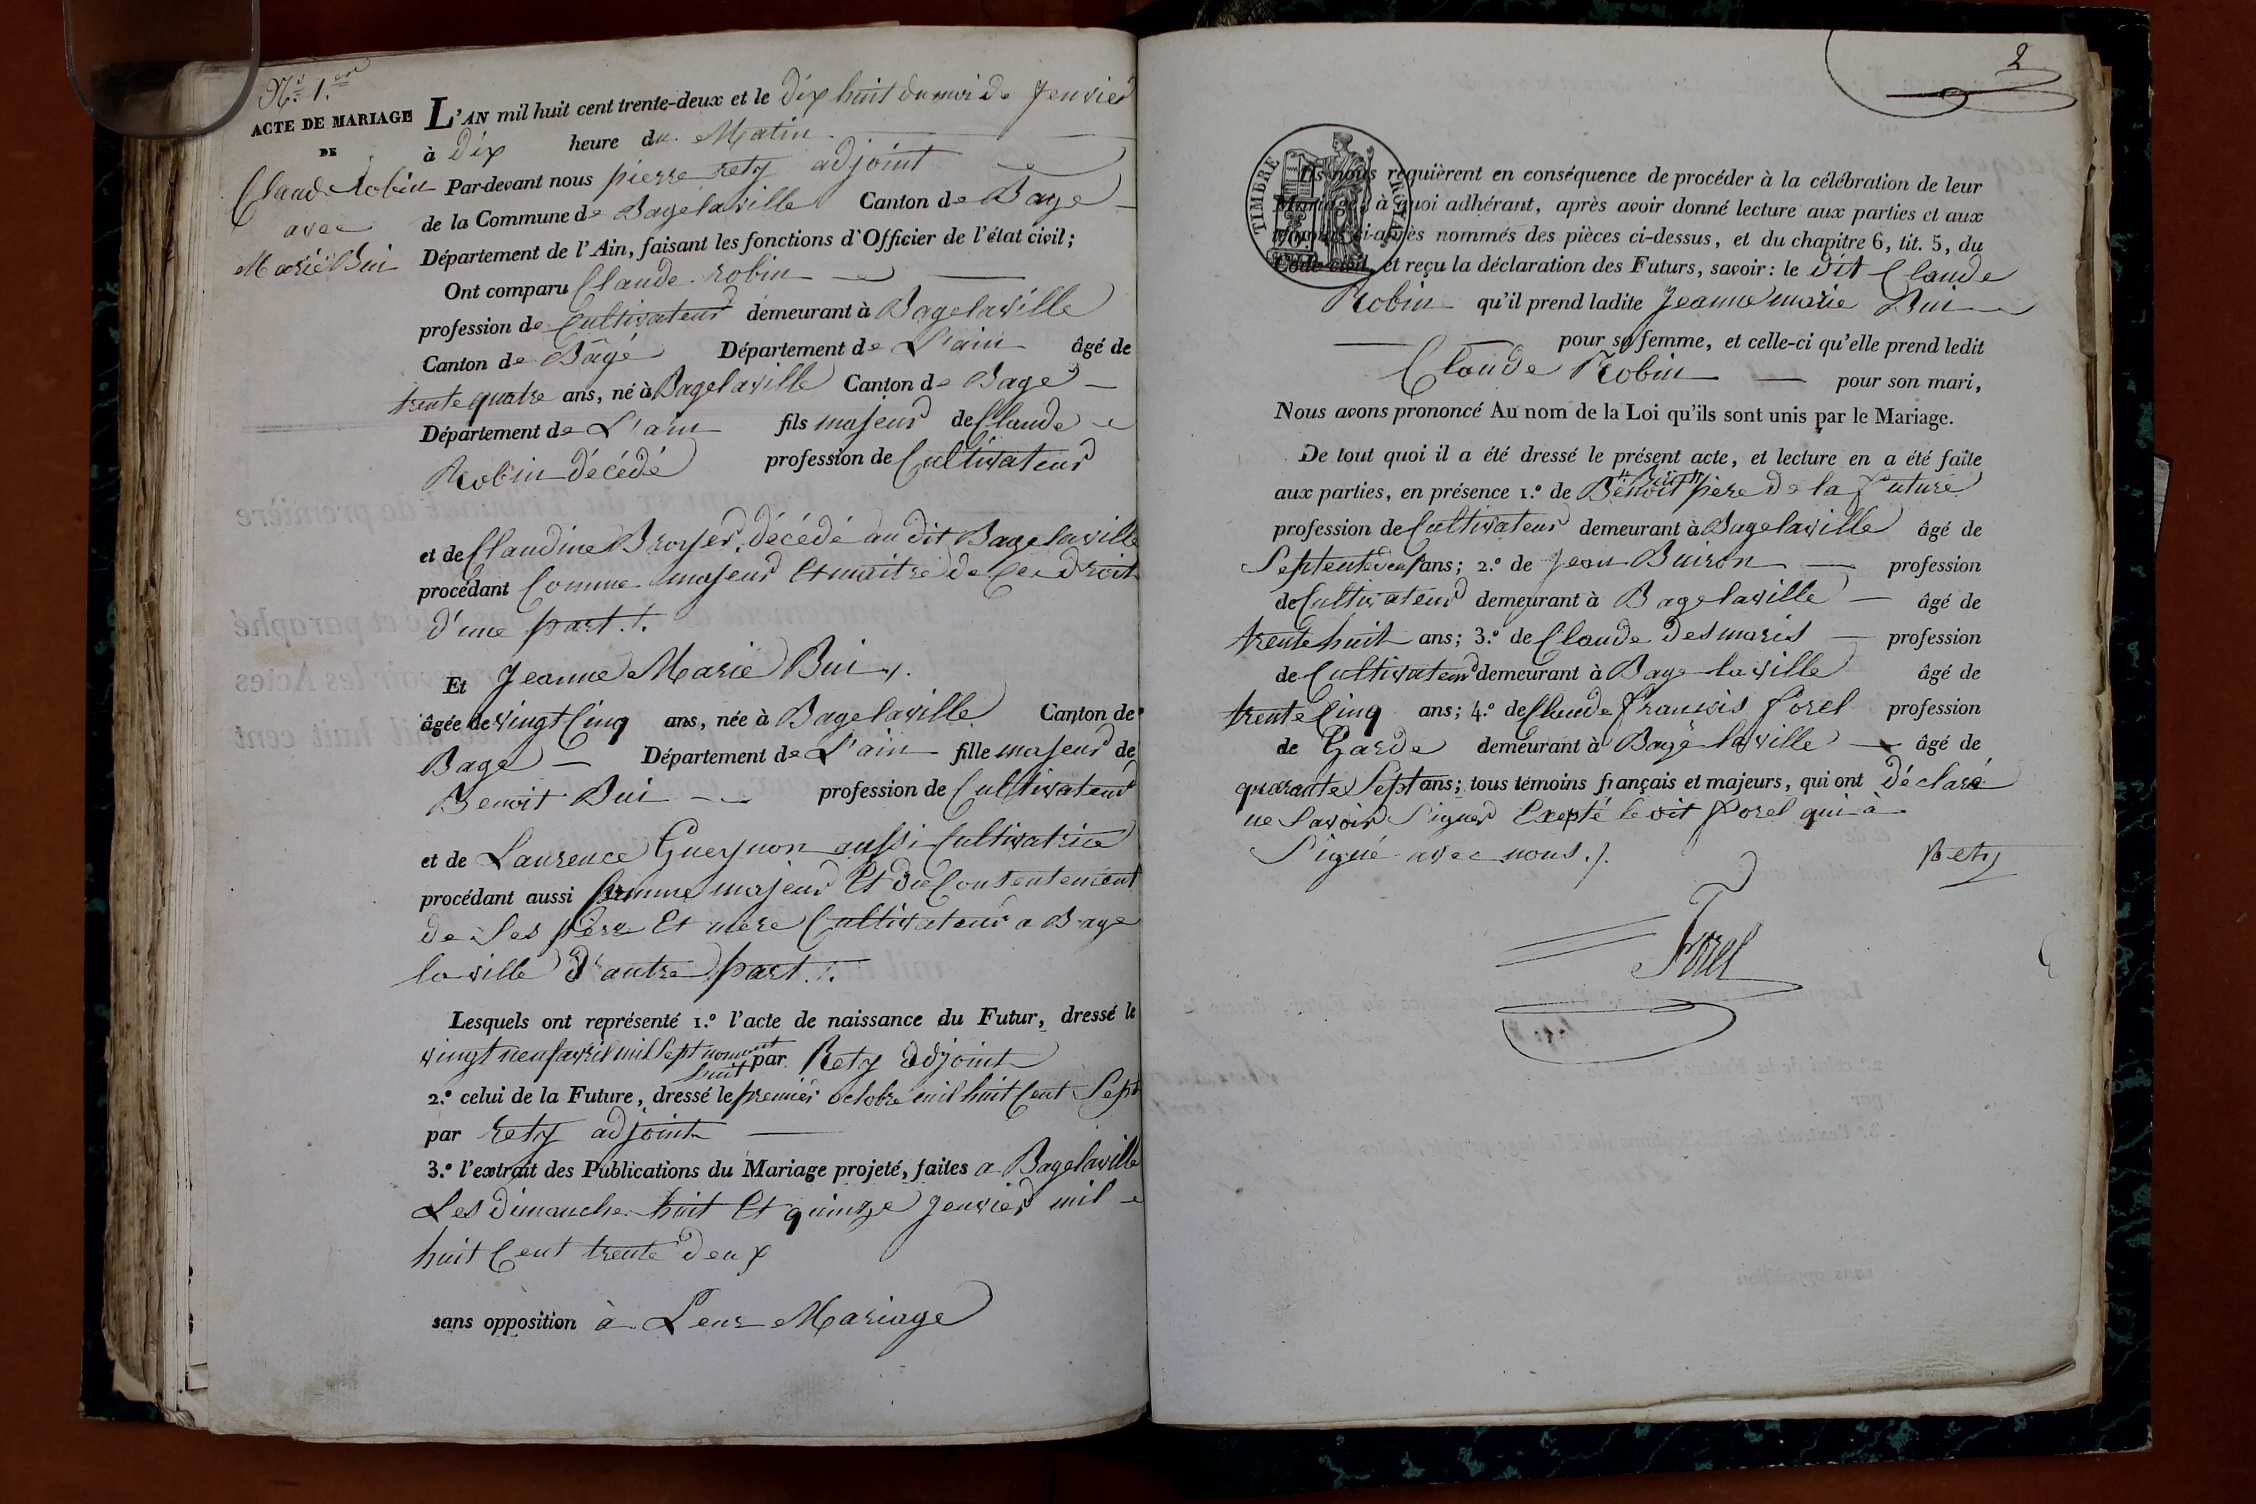 N.º 1.er
ACTE DE MARIAGE
DE
Claude Robin
avec
Marie Bui
L'AN mil huit cent trente-deux et le dix huit du moi de Jenvier
à dix heure du Matin
Par-devant nous pierre rety adjoint
de la Commune de Bagelaville Canton de Bage
Département de l'Ain, faisant les fonctions d'Officier de l'état civil;
Ont comparu Claude robin
profession de Cultivateur demeurant à Bagelaville
Canton de Bâgé Département de L'ain âgé de
trente quatre ans, né à Bagelaville Canton de Bage
Département de L'ain fils majeur de Claude
Robin décédé profession de Cultivateur
et de Claudine Broyer, décédé au dit Bagelaville
procédant Comme majeur Et maitre de Ces Droit
d'une part ./.
Et Jeanne Marie Bui ./.
âgée de vingt Cinq ans, née à Bagelaville Canton de
Bage Département de L'ain fille majeur de
Benoit Bui profession de Cultivateur
et de Laurence Gueynon aussi Cultivatrice
procédant aussi Comme majeur Et du Consentement
de Ses père Et mère Cultivateur a Bage
laville d'autre part ./.
Lesquels ont représenté 1.º l'acte de naissance du Futur, dressé le
vingt neuf avril mil Sept nonant huit par Rety adjoint
2.º celui de la Future, dressé le premier octobre mil huit Cent Sept
par rety adjoint
3.º l'extrait des Publications du Mariage projeté, faites a Bagelaville
Les dimanche huit Et quinze Jenvier mil
huit Cent trente deux
sans opposition à Leur Mariage
2
TIMBRE ROYAL
Ils nous requièrent en conséquence de procéder à la célébration de leur
Mariage, à quoi adhérant, après avoir donné lecture aux parties et aux
témoins ci-après nommés des pièces ci-dessus, et du chapitre 6, tit. 5, du
Code civil, et reçu la déclaration des Futurs, savoir: le dit Claude
Robin qu'il prend ladite Jeanne marie Bui
pour sa femme, et celle-ci qu'elle prend ledit
Claude Robin pour son mari,
Nous avons prononcé Au nom de la Loi qu'ils sont unis par le Mariage.
De tout quoi il a été dressé le présent acte, et lecture en a été faite
aux parties, en présence 1.º de Benoit père de la future
profession de Cultivateur demeurant à Bagelaville âgé de
Septente deux ans; 2.º de Jean Buiron profession
de Cultivateur demeurant à Bagelaville âgé de
trente huit ans; 3.º de Claude Desmaris profession
de Cultivateur demeurant à Bage laville âgé de
trente Cinq ans; 4.º de Claude francois forel profession
de Garde demeurant à Bagé laville âgé de
quarante Sept ans; tous témoins français et majeurs, qui ont déclaré
ne Savoir Signer Exepté le dit forel qui à
Signé avec nous ./.
Rety
Forel